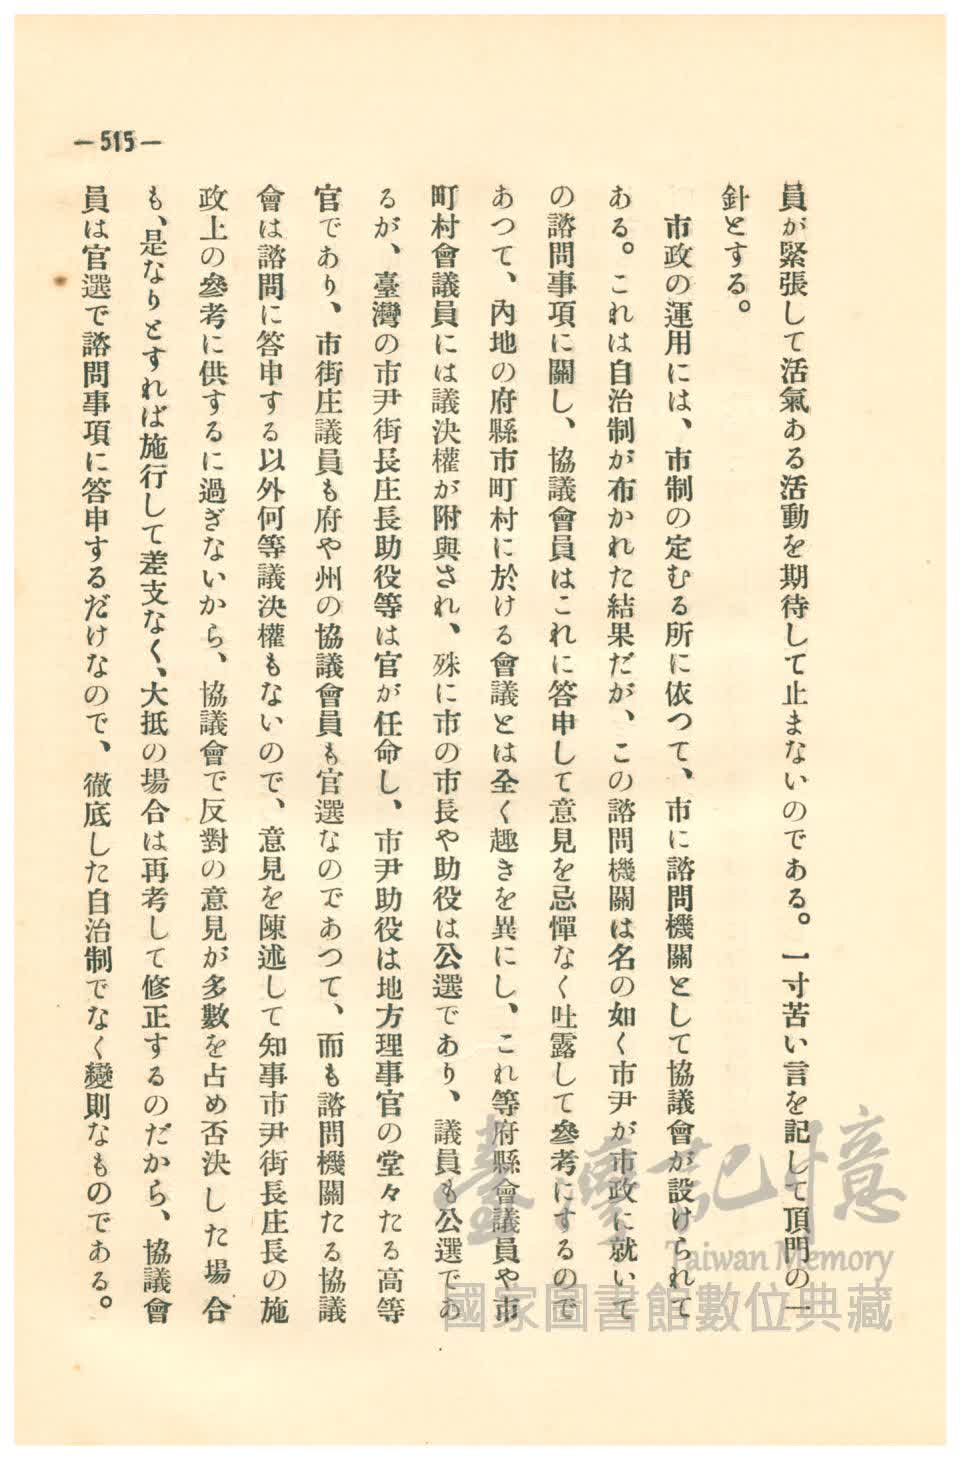 員が緊張して活氣ある活動を期待して止まないのである。一寸苦い言を記して頂門の一
針とする。
市政の運用には、市制の定むる所に依つて、市に諮問機關として協議會が設けられて
ある。これは自治制が布かれた結果だが、この諮問機關は名の如く市尹が市政に就いて
の諮問事項に關し、協議會員はこれに答申して意見を忌憚なく吐露して參考にするので
あつて、內地の府縣市町村に於ける會議とは全く趣きを異にし、これ等府縣會議員や市
町村會議員には議決權が附與され、殊に市の市長や助役は公選であり、議員も公選であ
るが、臺灣の市尹街長庄長助役等は官が任命し、市尹助役は地方理事官の堂々たる高等
官であり、市街庄議員も府や州の協議會員も官選なのであつて、而も諮問機關たる協議
會は諮問に答申する以外何等議決權もないので、意見を陳述して知事市尹街長庄長の施
政上の參考に供するに過ぎないから、協議會で反對の意見が多數を占め否決した場合
も、是なりとすれば施行して差支なく、大抵の場合は再考して修正するのだから、協議會
員は官選で諮問事項に答申するだけなので、徹底した自治制でなく變則なものである。
—515—
臺灣記憶
Taiwan Memory
國家圖書館數位典藏